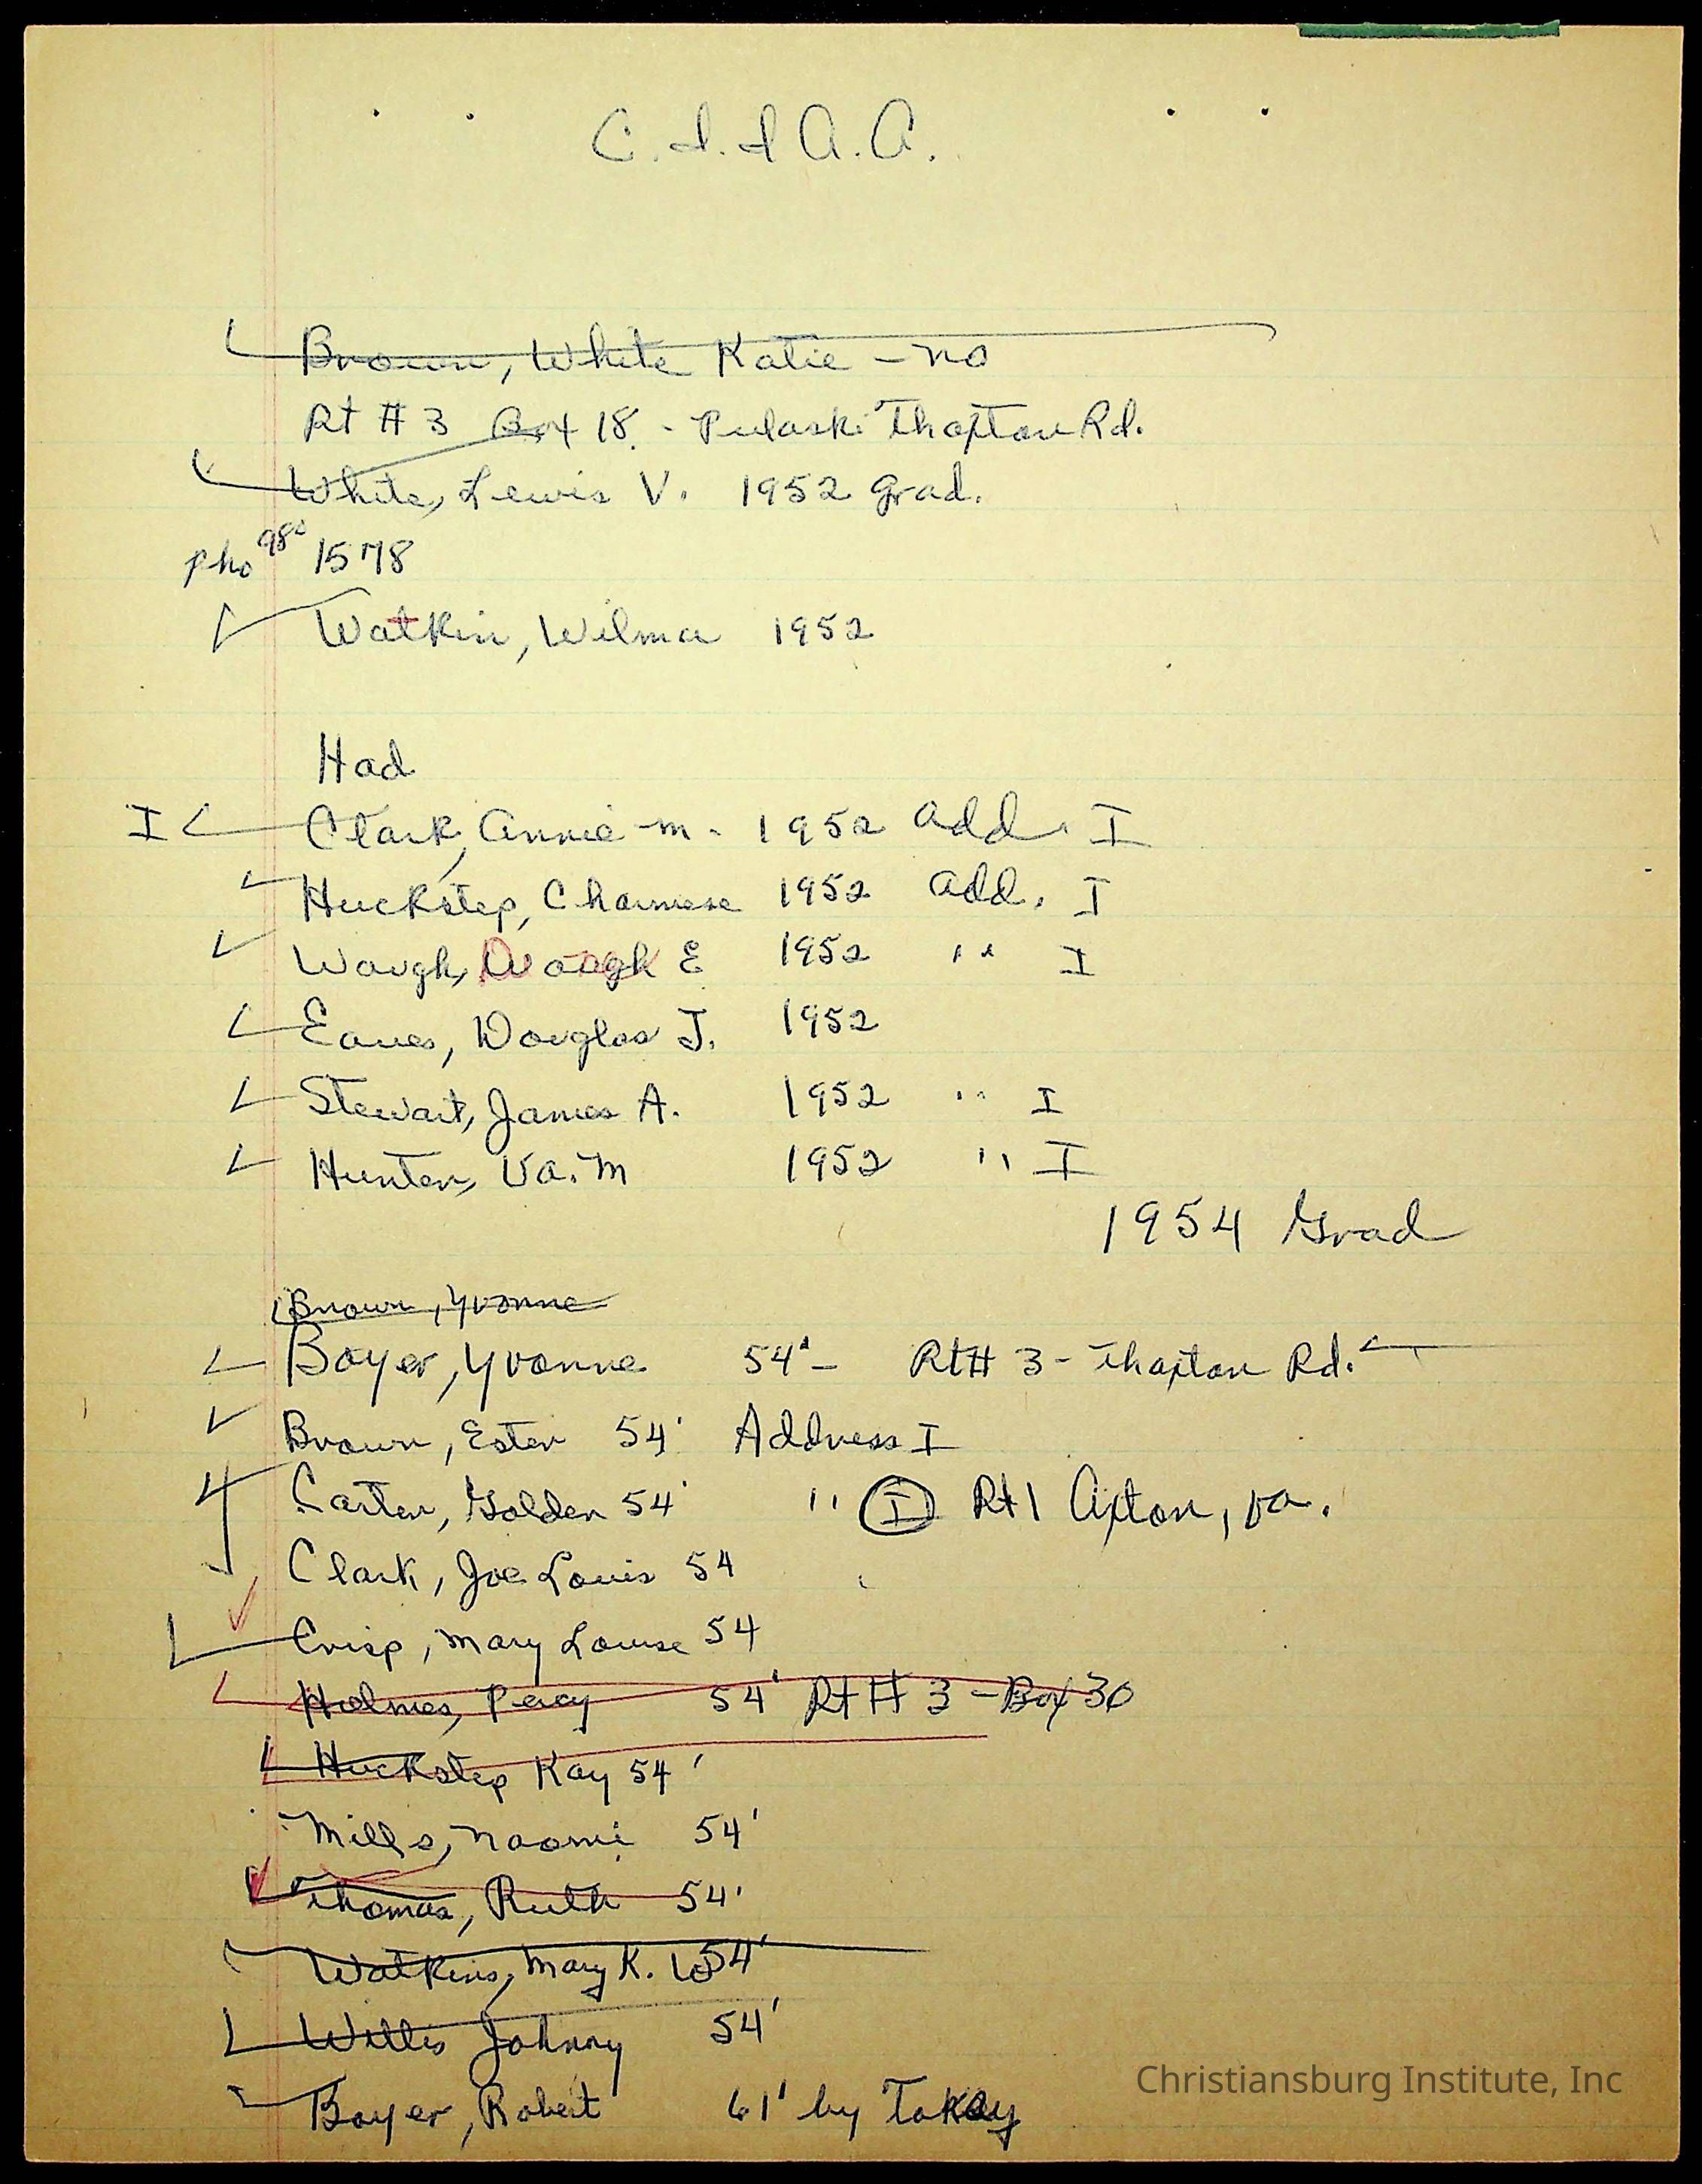 C. I. I A. A.
Brown, White Katie - no
Rt # 3 Box 18 - Pulaski Thaxton Rd.
White, Lewis V. 1952 grad.
pho 980 1578
Watkin, Wilma 1952
Had
I Clark, Annie M - 1952 add. I
Huckstep, Charmese 1952 add. I
Waugh, E 1952 " I
Eanes, Douglas J. 1952
Stewart, James A. 1952 " I
Hunter, Va. M 1952 " I
1954 Grad
Brown, Yvonne
Boyer, Yvonne 54' - Rt# 3 - Thaxton Rd.
Brown, Ester 54' Address I
Carter, Golden 54' " I Rt 1 Axton, Va.
Clark, Joe Louis 54
Crisp, Mary Louise 54
Holmes, Percy 54' Rt # 3 - Box 30
Huckstep Kay 54'
Mills, Naomi 54'
Thomas, Ruth 54'
Watkins, Mary K. W 54'
Willis Johnny 54'
Boyer, Robert 61' by Tokay
Christiansburg Institute, Inc